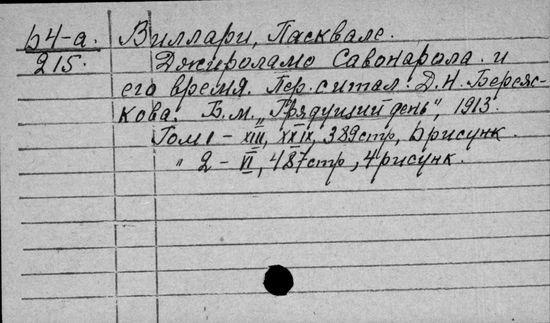 64-а. Виллари, Пасквале.
215. Джироламо Савонарола. и
его время. Пер. с итал. Д. Н. Береяс-
кова. В. м. "Грядущий день", 1913.
Том 1 - XIII, XXIX, 389 стр, 6 рисунк.
" 2 - VI, 487 стр, 4 рисунк.